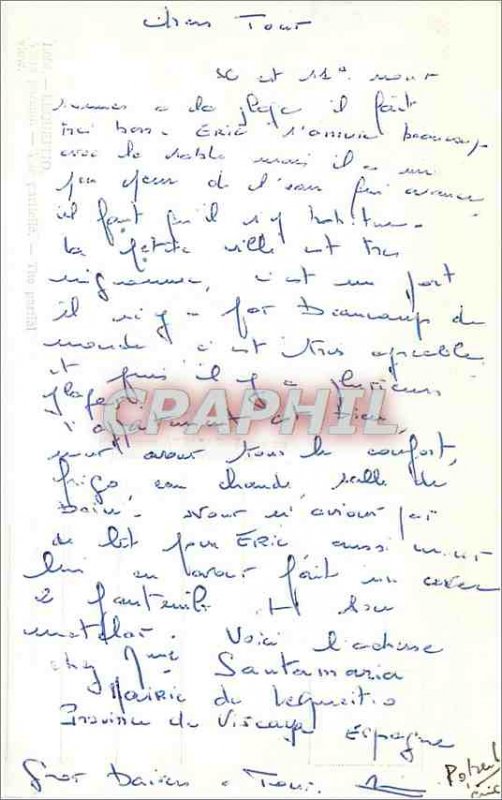 Chers Tous
Il est 11h. nous
sommes à la plage il fait
très bon. Eric s'amuse beaucoup
avec le sable mais il a un
peu peur de l'eau qui avance
il faut qu'il s'y habitue.
La petite ville est très
mignonne, c'est un port
il n'y a pas beaucoup de
monde, c'est très agréable
et puis il y a plusieurs
plages.
L'appartement est bien,
nous avons tous le confort,
frigo, eau chaude, salle de
bain. Nous n'avions pas
de lit pour Eric aussi nous
lui en avons fait un avec
2 fauteuils et un
matelas. Voici l'adresse
chez Mme Santamaria
Mairie de Lequeitio
Province de Viscaya Espagne
Gros baisers à Tous.
CPAPHIL
LEQUEITIO